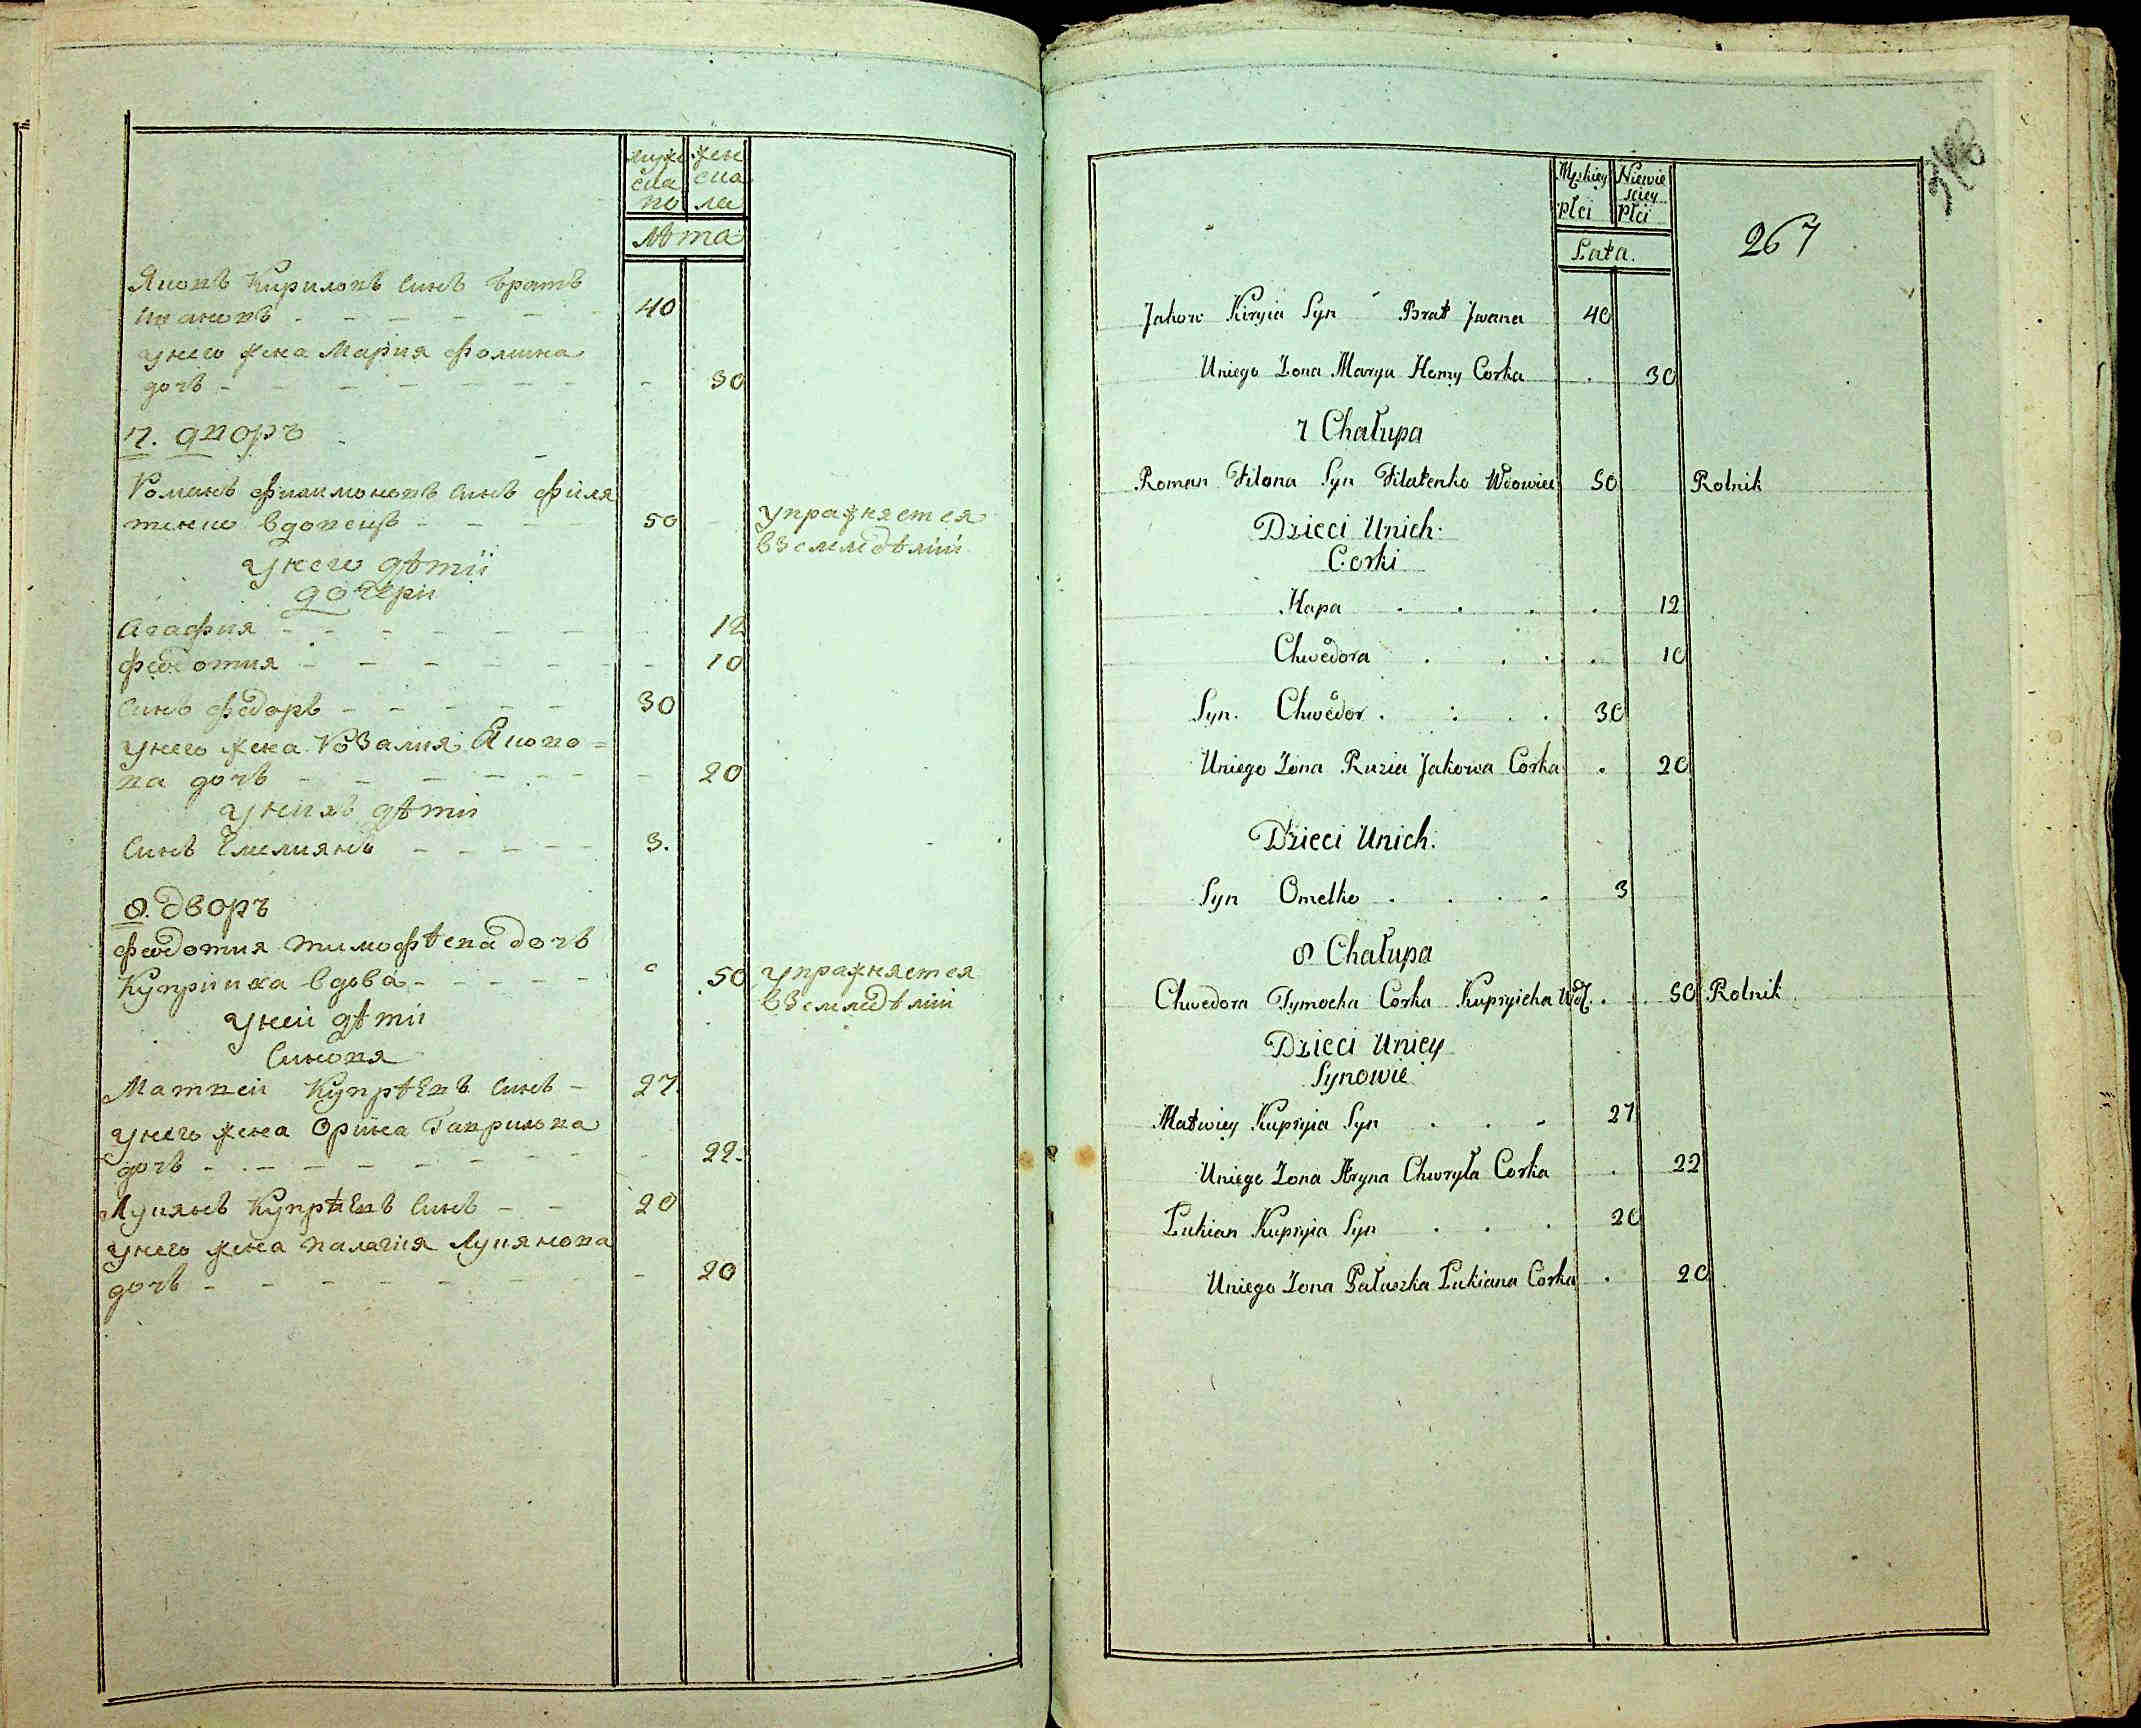 муже жен
ска ска
по ла
Лѣта
Яковъ Кириловъ синъ братъ
Ивановъ - - - - - - 40
унего жена Мария Фомина
дочь - - - - - - - - 30
7. дворъ
Романъ Филимоновъ синъ Филя
тенко вдовецъ - - - 50 упражняется
вземледѣлїи
унего дѣтїи
дочери
Агафия - - - - - - - 12
Феодотия - - - - - - - 10
Синъ Федоръ - - - - - 30
унего жена Розалия Яково=
ва дочь - - - - - - - 20
унихъ дѣтїи
Синъ Емелиянъ - - - - - 3.
8. дворъ
Феодотия тимофѣева дочь
Купрїиха вдова - - - - - 50 упражняется
вземледѣлїи
унеи дѣтїи
Синовя
Матвеи Купрѣевъ синъ - 27.
унего жена Орїина Гаврилова
дочь - - - - - - - - - 22.
Лукянъ Купрѣевъ Синъ - - 20
унего жена палагїя Лукянова
дочь - - - - - - - - 20
Męskiey Niewie
sciey
Płci Płci
Lata.
267
Jakow Kiryia Syn Brat Jwana 40
Uniego Zona Marya Homy Corka . 30
7 Chałupa
Roman Filona Syn Filatenko Wdowiec 50 Rolnik
Dzieci Unich:
Corki
Hapa . . . . 12
Chwedora . . . . 10
Syn. Chwedor . : . . 30
Uniego Zona Ruzia Jakowa Corka . 20
Dzieci Unich:
Syn Omelko . . . . 3
8 Chałupa
Chwedora Tymocha Corka Kupryicha Wd. . . 50 Rolnik
Dzieci Uniey
Synowie
Matwiey Kupryia Syn . . . 27
Uniego Zona Aryna Chwryła Corka . 22
Łukian Kupryia Syn . . . 20
Uniego Zona Pałaszka Łukiana Corka . 20